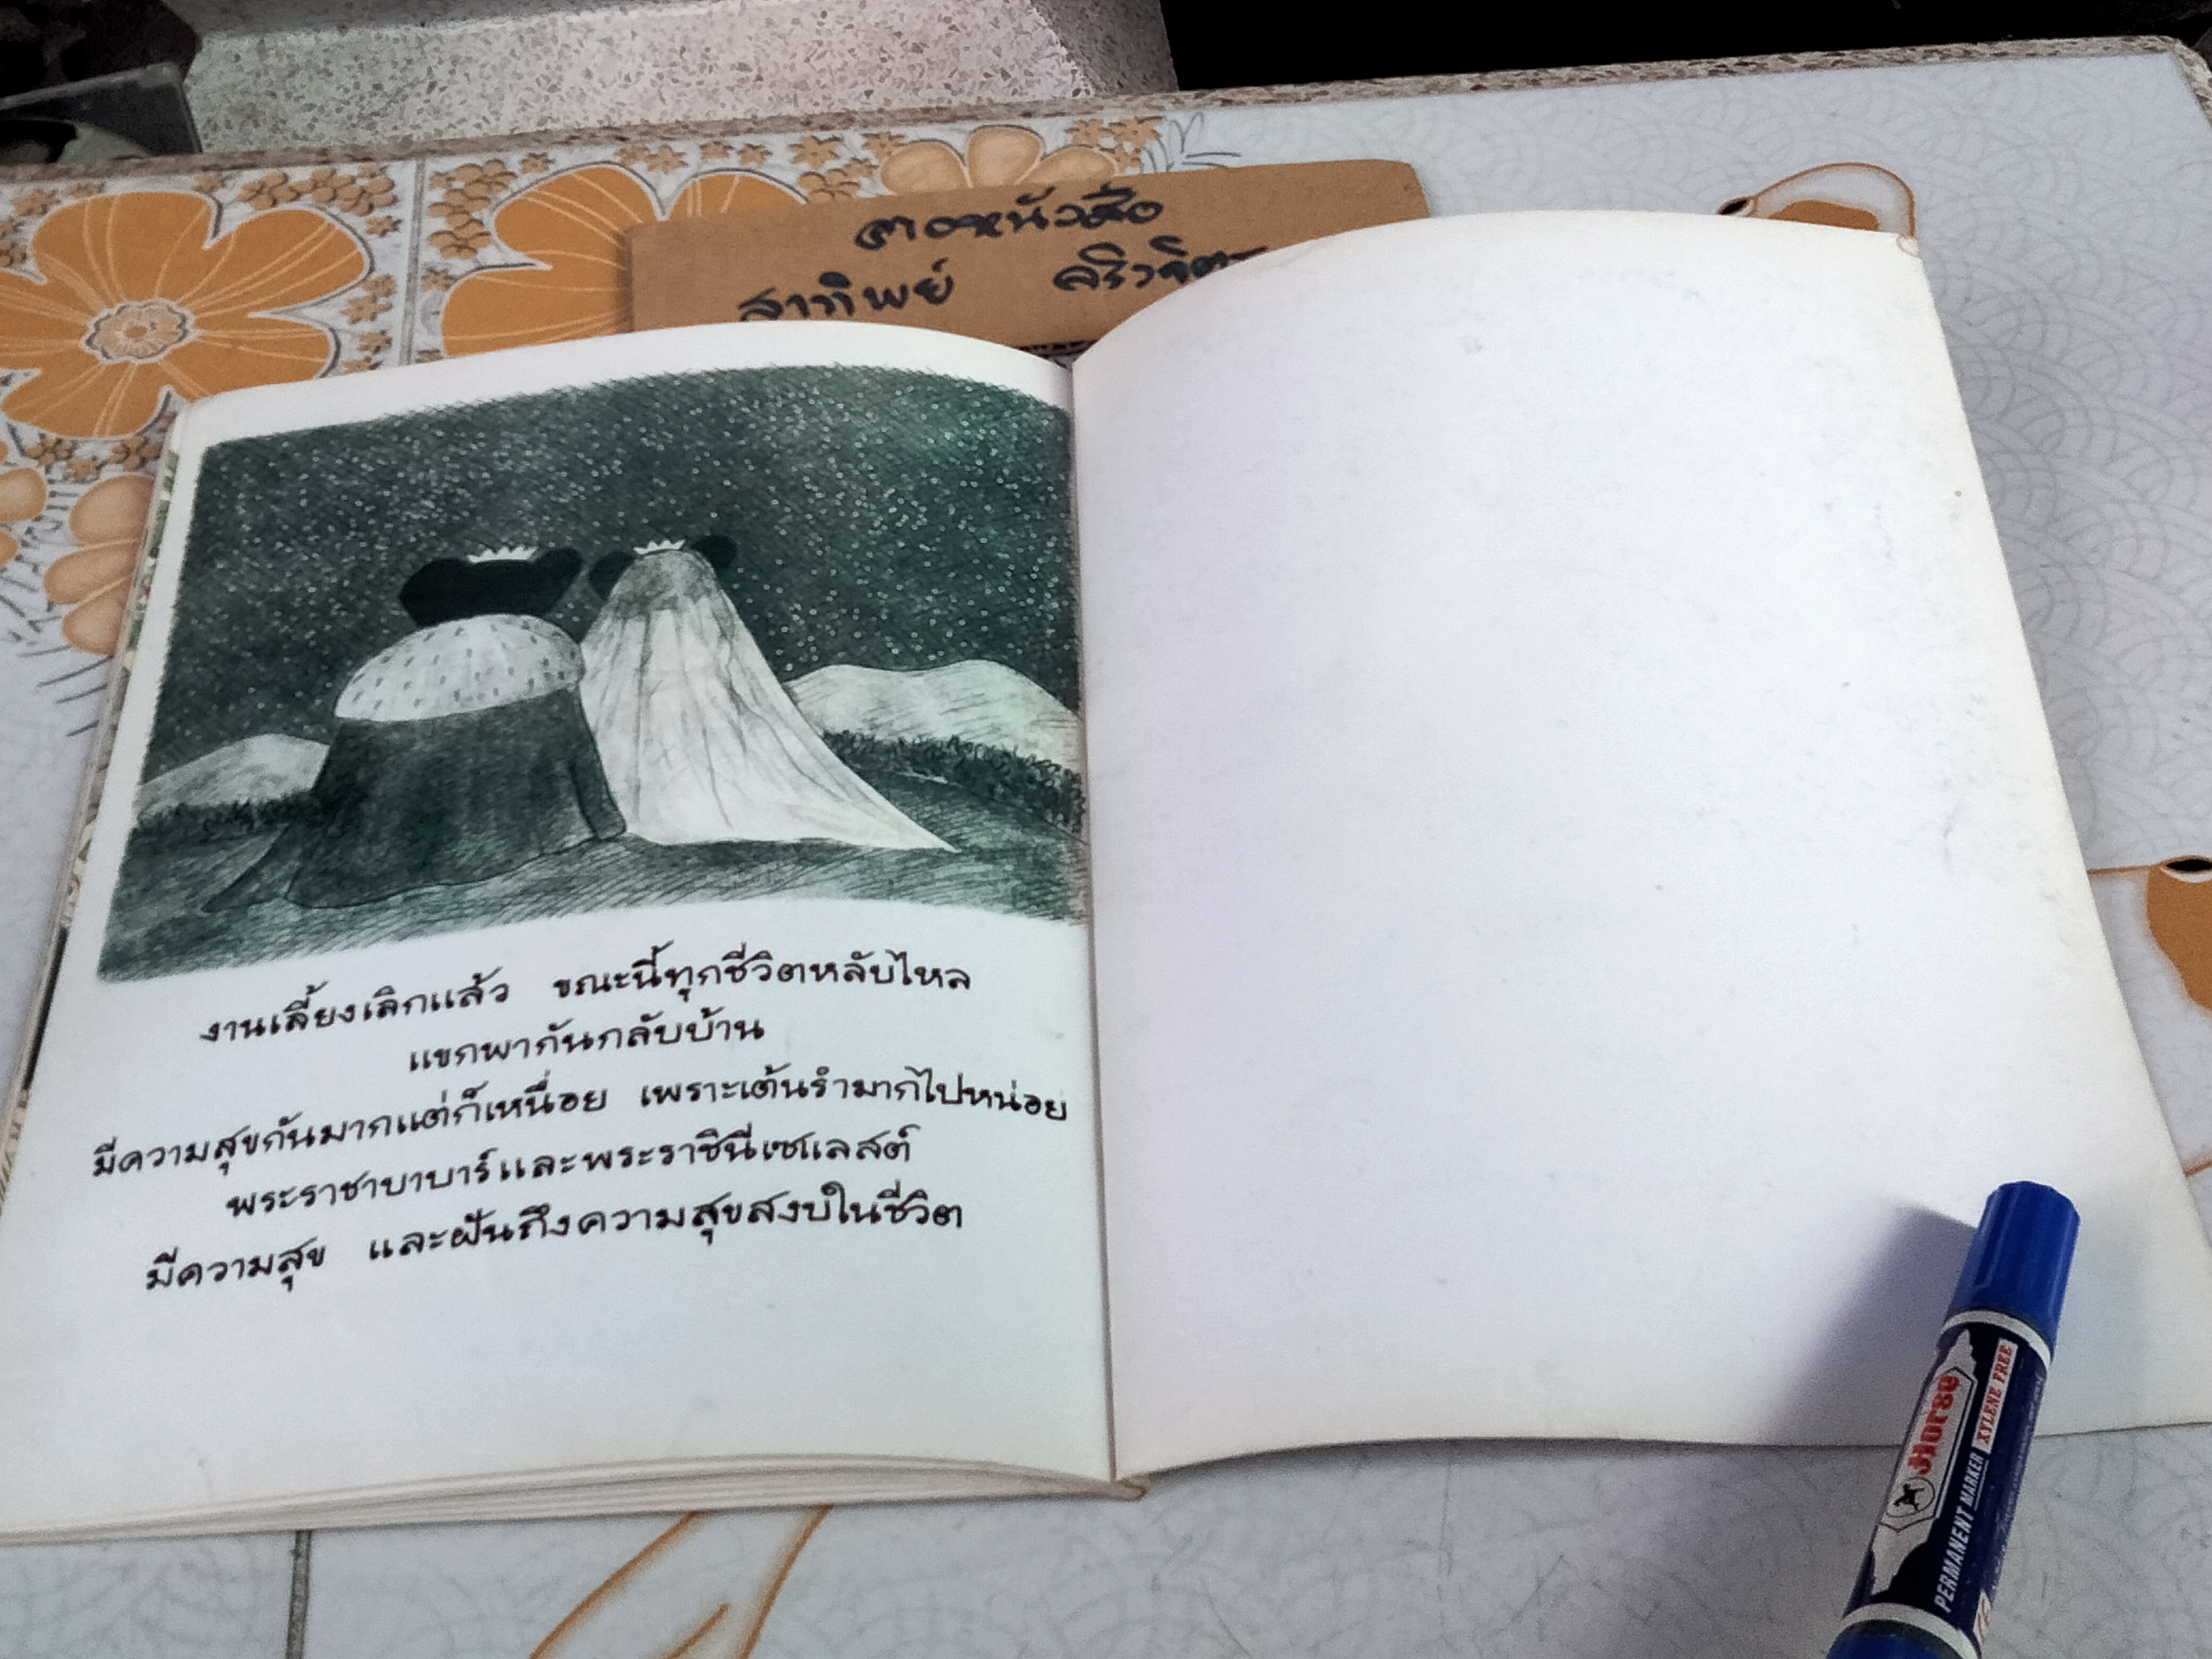 ตอหนัวสือ
สาทิพย์
งานเลี้ยงเลิกแล้ว ขณะนี้ทุกชีวิตหลับไหล
แขกพากันกลับบ้าน
มีความสุขกันมากแต่ก็เหนื่อย เพราะเต้นรำมากไปหน่อย
พระราชาบาบาร์และพระราชินีเซเลสต์
มีความสุข และฝันถึงความสุขสงบในชีวิต
Horse
PERMANENT MARKER
XYLENE FREE